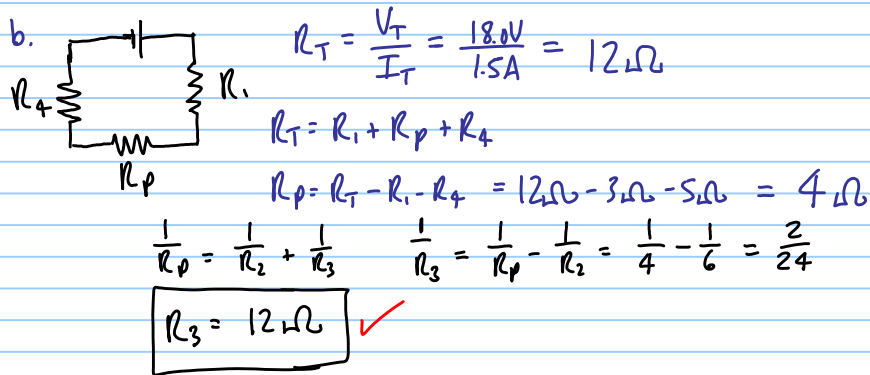 b.
R_T = V_T / I_T = 18.0V / 1.5A = 12Ω
R_4
R_1
R_P
R_T = R_1 + R_P + R_4
R_P = R_T - R_1 - R_4 = 12Ω - 3Ω - 5Ω = 4Ω
1/R_P = 1/R_2 + 1/R_3    1/R_3 = 1/R_P - 1/R_2 = 1/4 - 1/6 = 2/24
R_3 = 12Ω ✓